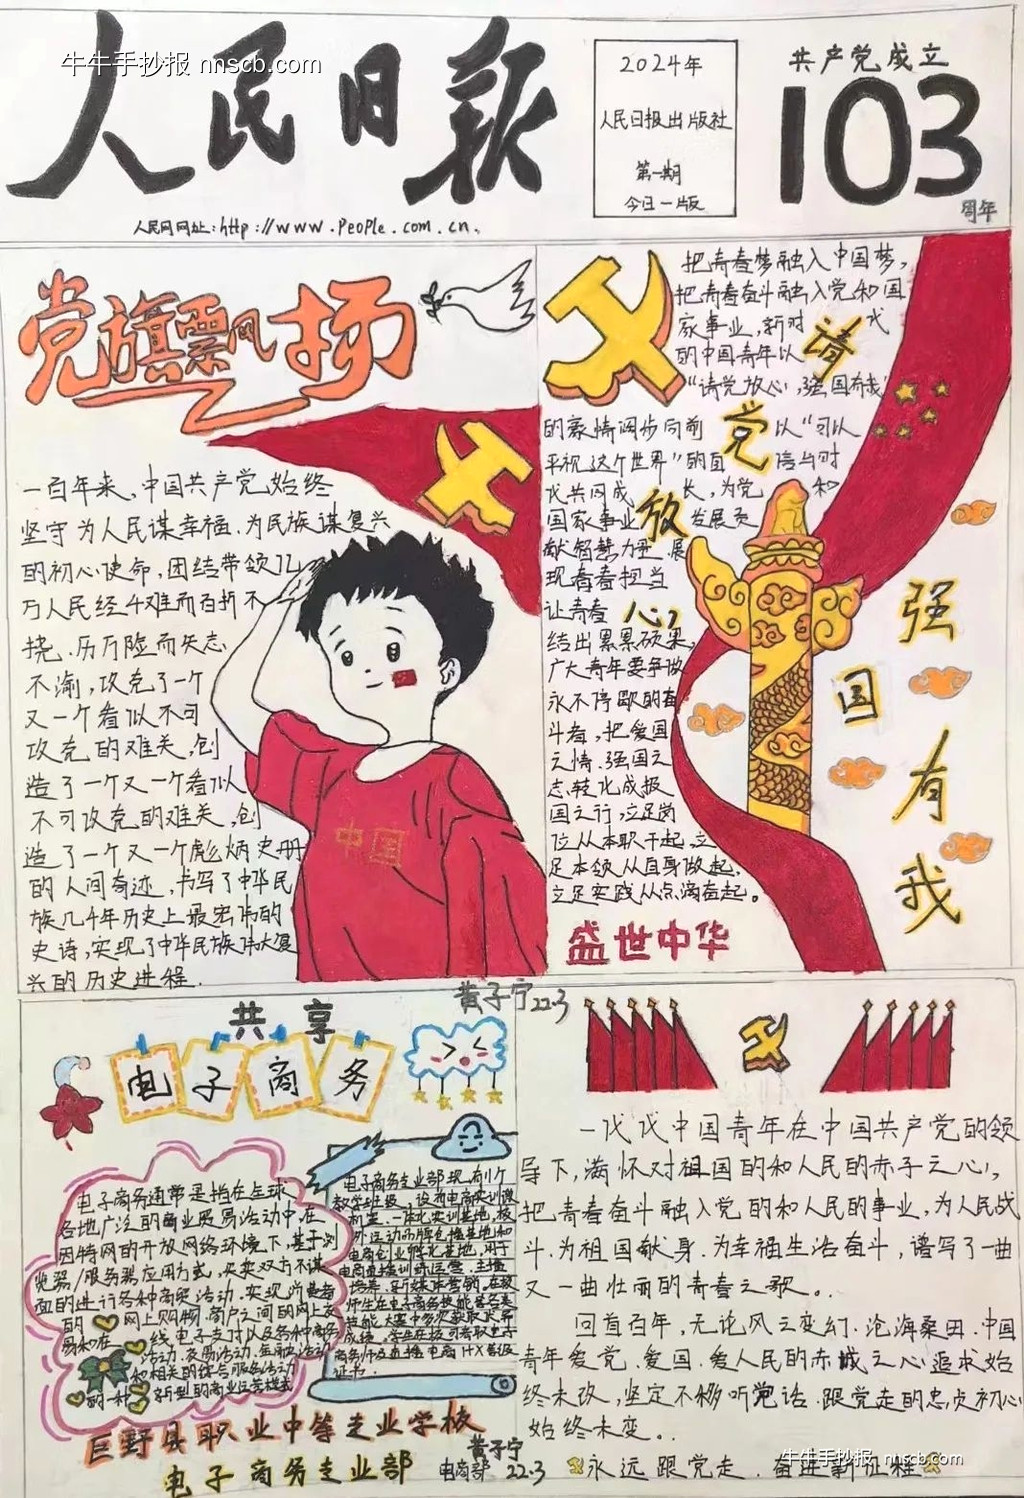 人民日报
牛牛手抄报 nnscb.com
人民网网址:http://www.PeoPle.com.cn.
2024年
人民日报出版社
第一期
今日一版
共产党成立
103
周年
党旗飘扬
一百年来,中国共产党始终
坚守为人民谋幸福、为民族谋复兴
的初心使命,团结带领亿
万人民经千难而百折不
挠、历万险而矢志
不渝,攻克了一个
又一个看似不可
攻克的难关,创
造了一个又一个看似
不可攻克的难关,创
造了一个又一个彪炳史册
的人间奇迹,书写了中华民
族几千年历史上最宏伟的
史诗,实现了中华民族伟大复
兴的历史进程.
中国
把青春梦融入中国梦,
把青春奋斗融入党和国
家事业,新时代
的中国青年以
“请党放心,强国有我”
的豪情阔步向前 以“可以
平视这个世界”的自
代共同成长,为党和
国家事业发展贡
献智慧力量、展
现青春担当
让青春
结出累累硕果,
广大青年要争做
永不停歇的奋
斗者,把爱国
之情、强国之
志转化成报
国之行,立足岗
位从本职干起,立
足本领从自身做起,
立足实践从点滴奋起。
请党放心,
强国有我
盛世中华
黄子宁22.3
共享
电子商务
电子商务通常是指在全球
各地广泛的商业贸易活动中,在
因特网的开放网络环境下,基于浏
览器/服务器应用方式,买卖双方不谋
面的进行各种商贸活动,实现消费者
的网上购物、商户之间的网上交
易和在线电子支付以及各种商务
活动、交易活动、金融活动
和相关的综合服务活动
的一种新型的商业运营模式
电子商务专业部现有11个
教学班级,设有电商实训课
巨野县职业中等专业学校
电子商务专业部
黄子宁
电商部 22.3
一代代中国青年在中国共产党的领
导下,满怀对祖国的和人民的赤子之心,
把青春奋斗融入党的和人民的事业,为人民战
斗、为祖国献身、为幸福生活奋斗,谱写了一曲
又一曲壮丽的青春之歌。.
回首百年,无论风云变幻、沧海桑田、中国
青年爱党、爱国、爱人民的赤诚之心追求始
终未改,坚定不移听党话、跟党走的忠贞初心
始终未变。.
永远跟党走、奋进新征程
牛牛手抄报 nnscb.com